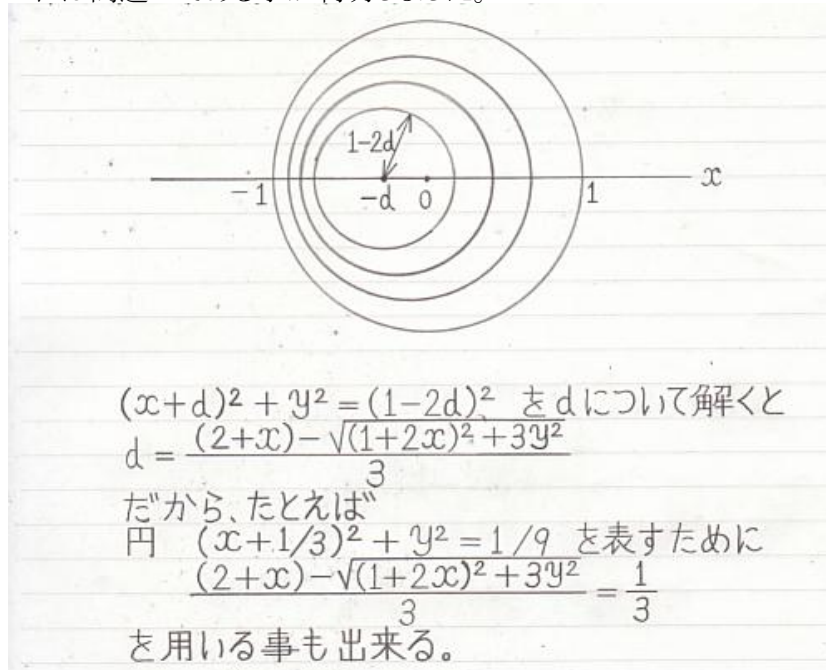 1-2d
-1 -d 0 1 x
(x+d)² + y² = (1-2d)² をdについて解くと
d = \frac{(2+x)-√((1+2x)²+3y²)}{3}
だから、たとえば
円 (x+1/3)² + y² = 1/9 を表すために
\frac{(2+x)-√((1+2x)²+3y²)}{3} = \frac{1}{3}
を用いる事も出来る。